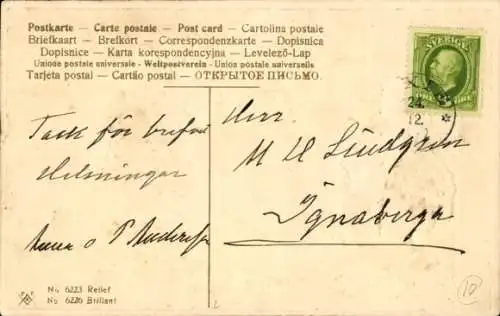 Postkarte – Carte postale – Post card – Cartolina postale
Briefkaart – Brefkort – Correspondenzkarte – Dopisnica
Dopisnice – Karta korespondencyjna – Levelező-Lap
Unione postale universale – Weltpostverein – Union postale universelle
Tarjeta postal – Cartão postal – ОТКРЫТОЕ ПИСЬМО.
SVERIGE
24
12
Tack för brefvet
Helsningar
Anna o P Anderss
Herr
M H Lindgren
Ignaberga
No. 6223 Relief
No. 6226 Brillant
10